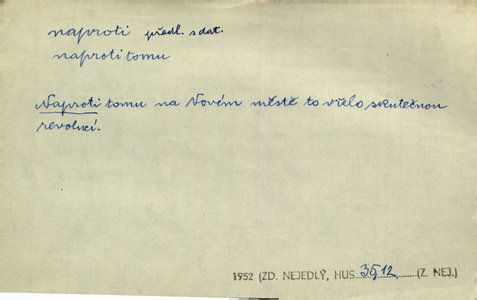 naproti předl. s dat.
naproti tomu
Naproti tomu na Novém městě to vřelo skutečnou
revolucí.
1952 (ZD. NEJEDLÝ, HUS. 35, 12 (Z. NEJ.)